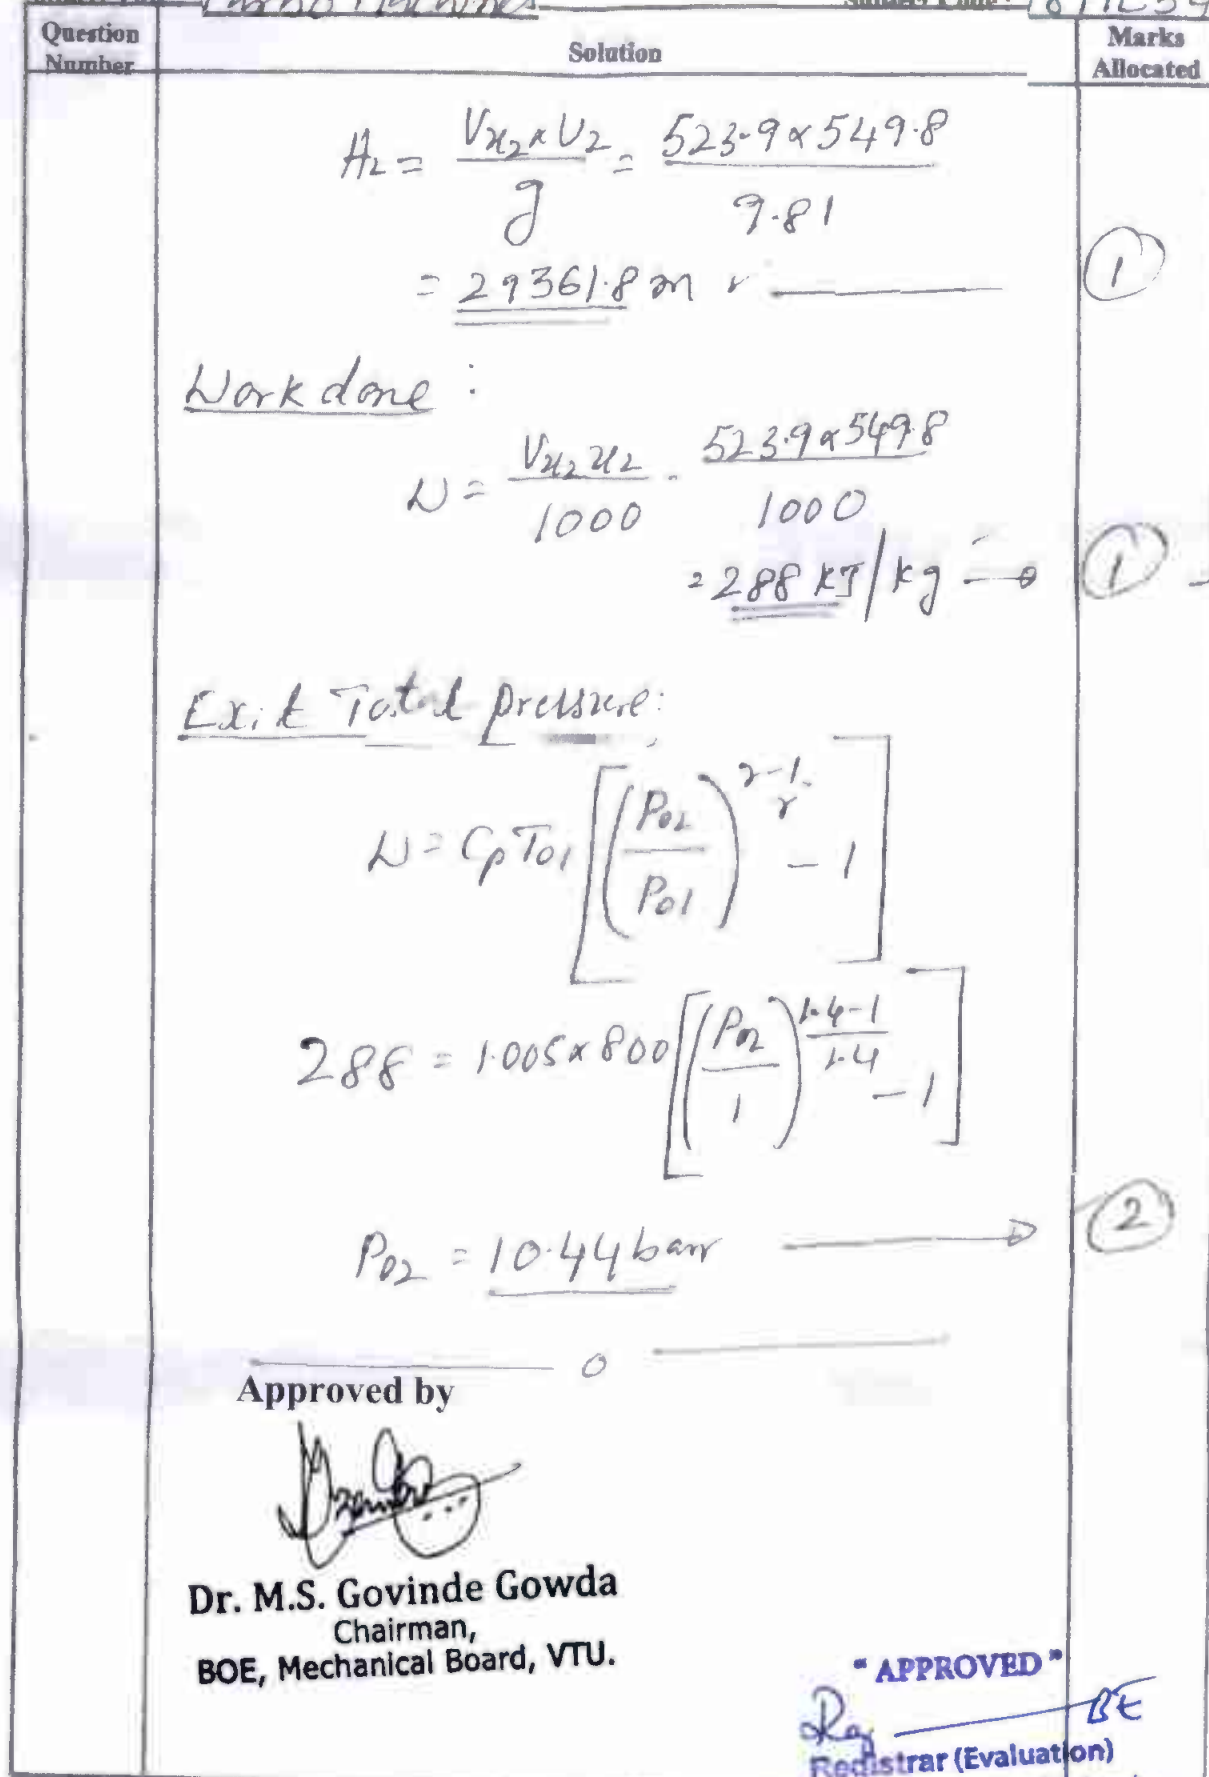 Turbo Machines
Question Number
Solution
Marks Allocated
H₂ = Vx₂ x U₂ / g = 523.9 x 549.8 / 9.81
= 29361.8 m
1
Work done :
W = Vu₂ u₂ / 1000 = 523.9 x 549.8 / 1000
= 288 KJ/kg
1
Exit Total pressure:
W = Cp T₀₁ [ (P₀₂ / P₀₁)^(γ-1 / γ) - 1 ]
288 = 1.005 x 800 [ (P₀₂ / 1)^(1.4-1 / 1.4) - 1 ]
P₀₂ = 10.44 barr
2
Approved by
Dr. M.S. Govinde Gowda
Chairman,
BOE, Mechanical Board, VTU.
" APPROVED "
BE
Registrar (Evaluation)